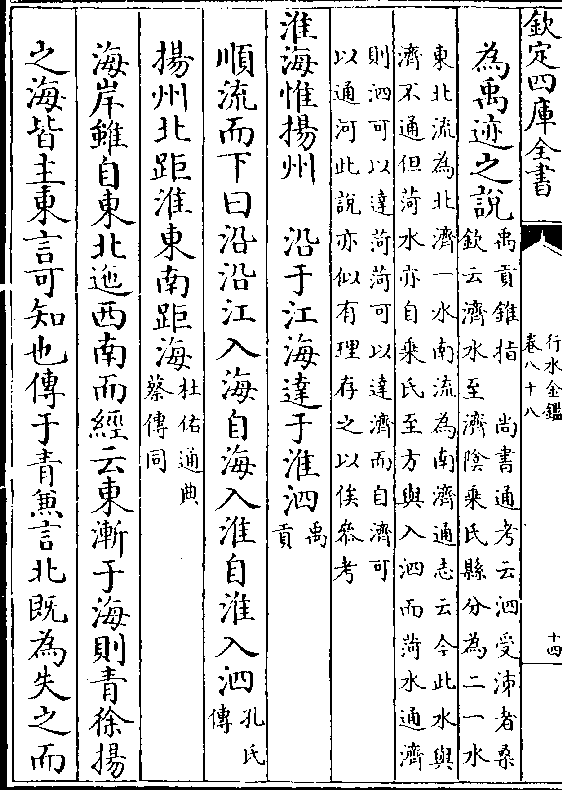 欽定四庫全書
行水金鑑
卷八十八
十四
為禹迹之說
禹貢錐指　尚書通考云泗受泲者桑
欽云濟水至濟陰乘氏縣分為二一水
東北流為北濟一水南流為南濟通志云今此水與
濟不通但菏水亦自乘氏至方與入泗而菏水通濟
則泗可以達菏菏可以達濟而自濟可
以通河此說亦似有理存之以俟叅考
淮海惟揚州　沿于江海達于淮泗
禹
貢
順流而下曰沿沿江入海自海入淮自淮入泗
孔氏
傳
揚州北距淮東南距海
杜佑通典
蔡傳同
海岸雖自東北迤西南而經云東漸于海則青徐揚
之海皆主東言可知也傳于青兼言北既為失之而